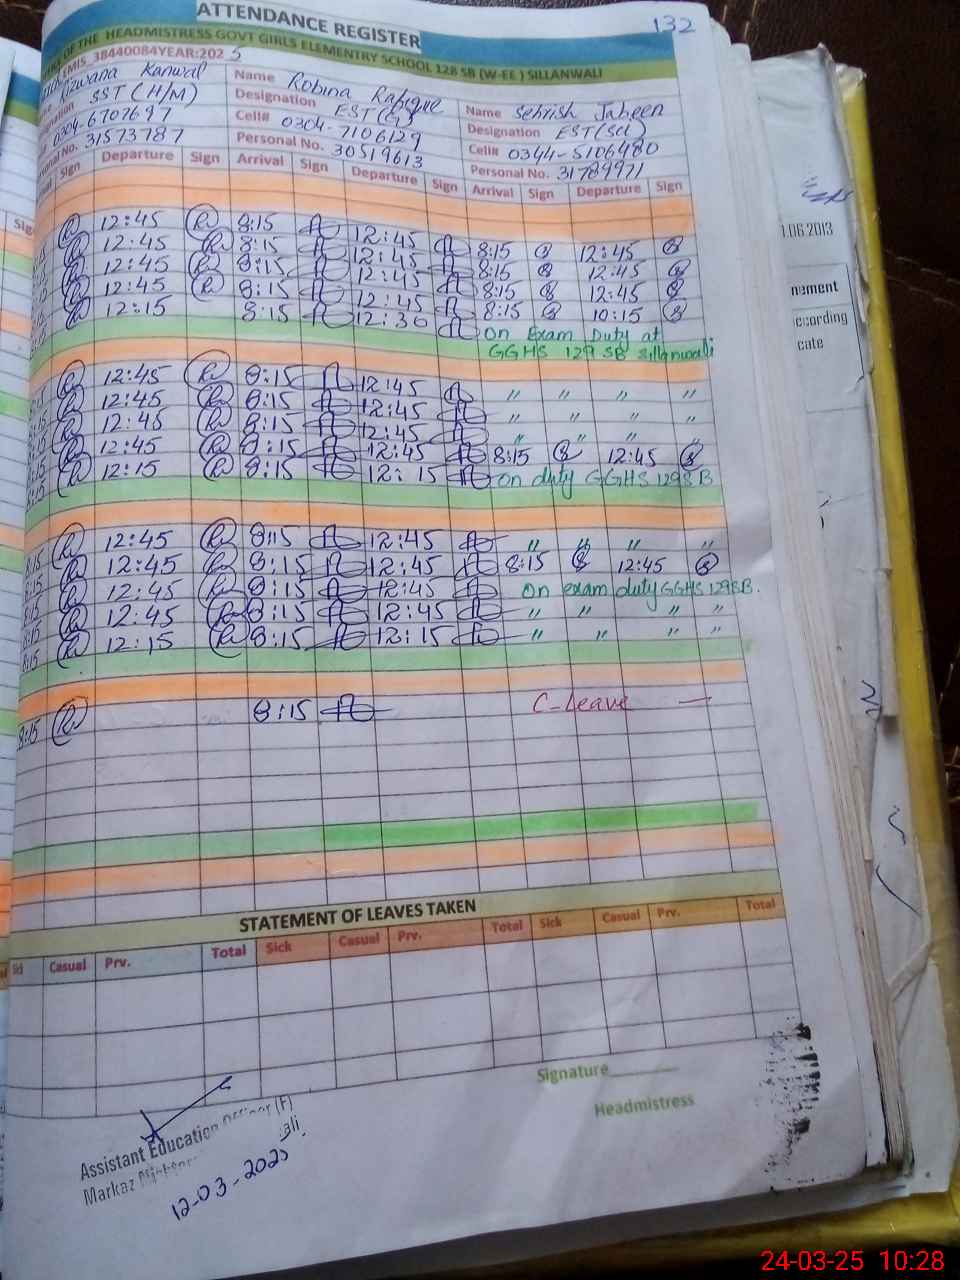 132
ATTENDANCE REGISTER
OF THE HEADMISTRESS GOVT GIRLS ELEMENTRY SCHOOL 128 SB (W-EE ) SILLANWALI
EMIS_38440084YEAR:2025
Kanwal Name Robina Rafique Name Sehrish Jabeen
SST (H/M) Designation EST Designation EST(Sci)
0304-6707697 Cell# 0304-7106129 Cell# 0344-5106480
No. 31573787 Personal No. 30519613 Personal No. 31789971
Sign Departure Sign Arrival Sign Departure Sign Arrival Sign Departure Sign
12:45 8:15 12:45 8:15 12:45
12:45 8:15 12:45 8:15 12:45
12:45 8:15 12:45 8:15 12:45
12:45 8:15 12:45 8:15 10:15
12:15 8:15 12:30 On Exam Duty at
GGHS 129 SB Sillanwali
12:45 8:15 12:45 " " " "
12:45 8:15 12:45 " " " "
12:45 8:15 12:45 " " " "
12:45 8:15 12:45 8:15 12:45
12:15 8:15 12:15 On duty GGHS 129SB
12:45 8:15 12:45 " " " "
12:45 8:15 12:45 8:15 12:45
12:45 8:15 12:45 On exam duty GGHS 129SB.
12:45 8:15 12:45 " " " "
12:15 8:15 12:15 " " " "
8:15 8:15 C-Leave —
STATEMENT OF LEAVES TAKEN
Casual Prv. Total Sick Casual Prv. Total Sick Casual Prv. Total
Signature
Headmistress
Assistant Education Officer (F)
Markaz
12-03-2025
1.06.2013
ecording
cate
24-03-25 10:28